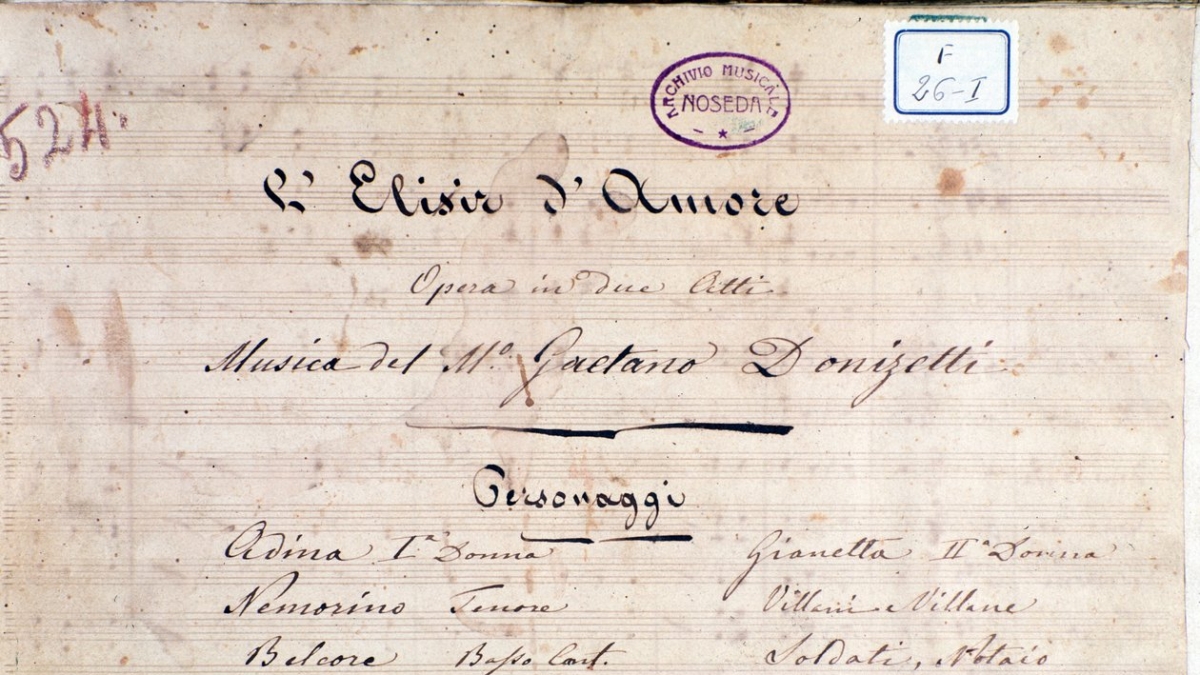 ARCHIVIO MUSICALE
NOSEDA
F
26-I
524.
L'Elisir d'Amore
Opera in due Atti
Musica del Mo. Gaetano Donizetti
Personaggi
Adina Ia Donna Gianetta IIa Donna
Nemorino Tenore Villani e Villane
Belcore Basso Cant. Soldati, Notaio